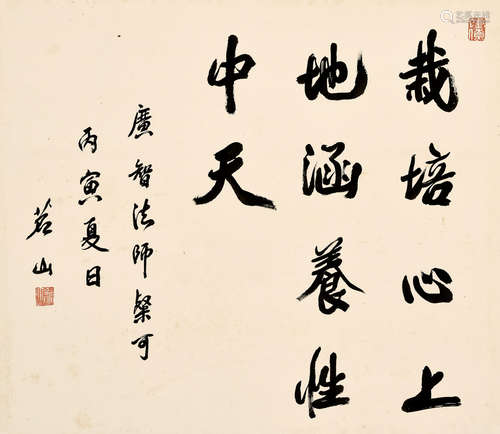 栽培心上
地涵養性
中天
廣智法師粲可
丙寅夏日
茗山